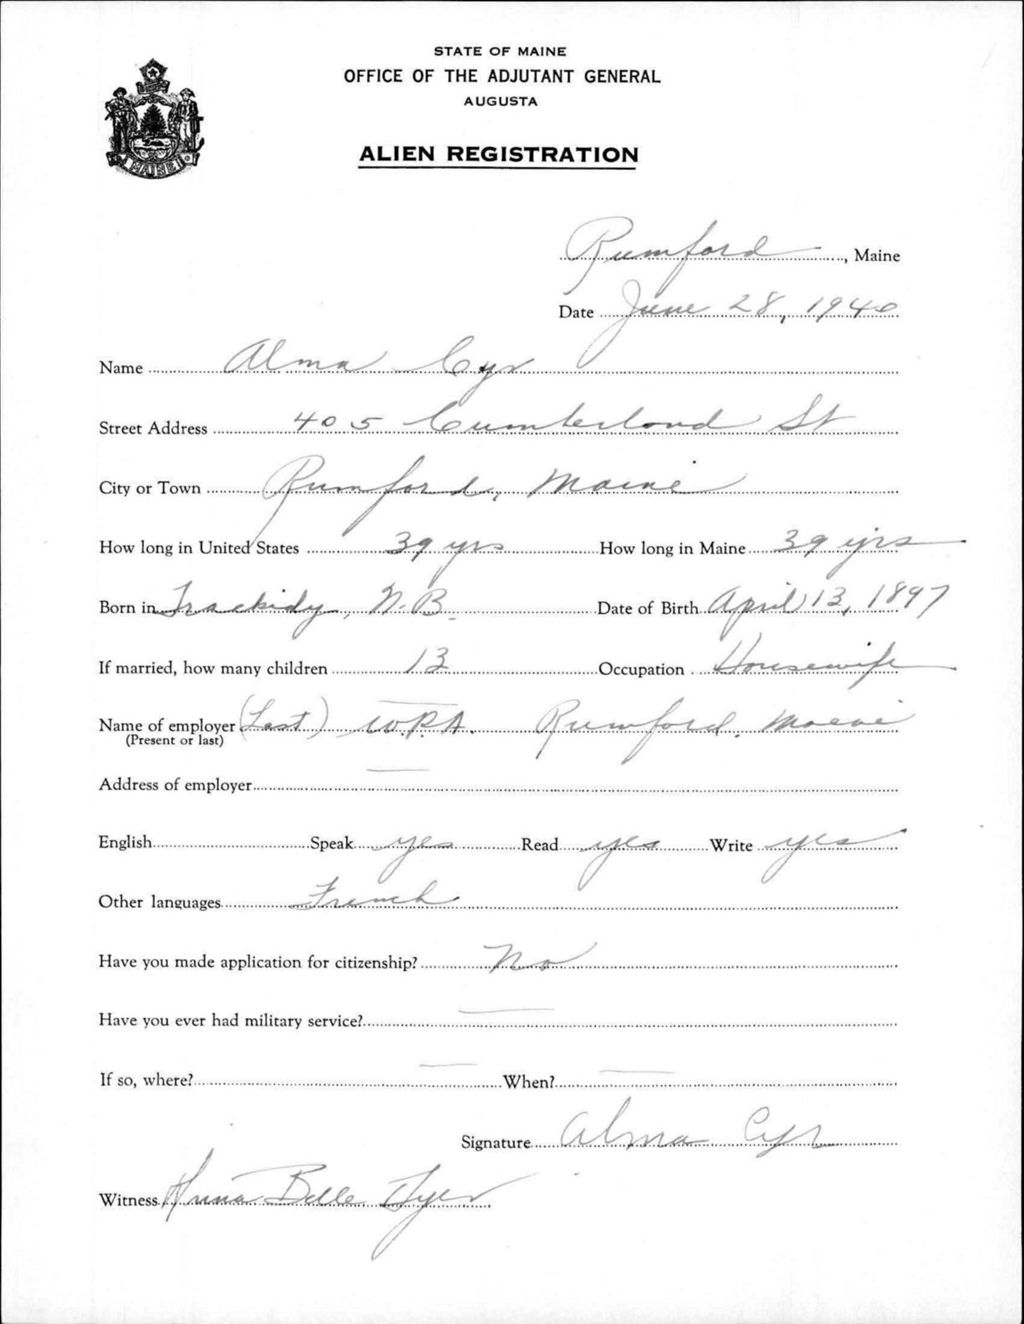 STATE OF MAINE
OFFICE OF THE ADJUTANT GENERAL
AUGUSTA
ALIEN REGISTRATION
MAINE
Rumford, Maine
Date June 28, 1940
Name Alma Cyr
Street Address 405 Cumberland St
City or Town Rumford, Maine
How long in United States 39 yrs How long in Maine 39 yrs
Born in Trackidy, N.B. Date of Birth April 13, 1897
If married, how many children 13 Occupation Housewife
Name of employer (Last) W.P.A. Rumford, Maine
(Present or last)
Address of employer —
English Speak yes Read yes Write yes
Other languages French
Have you made application for citizenship? No
Have you ever had military service? —
If so, where? — When? —
Signature Alma Cyr
Witness Anna Belle